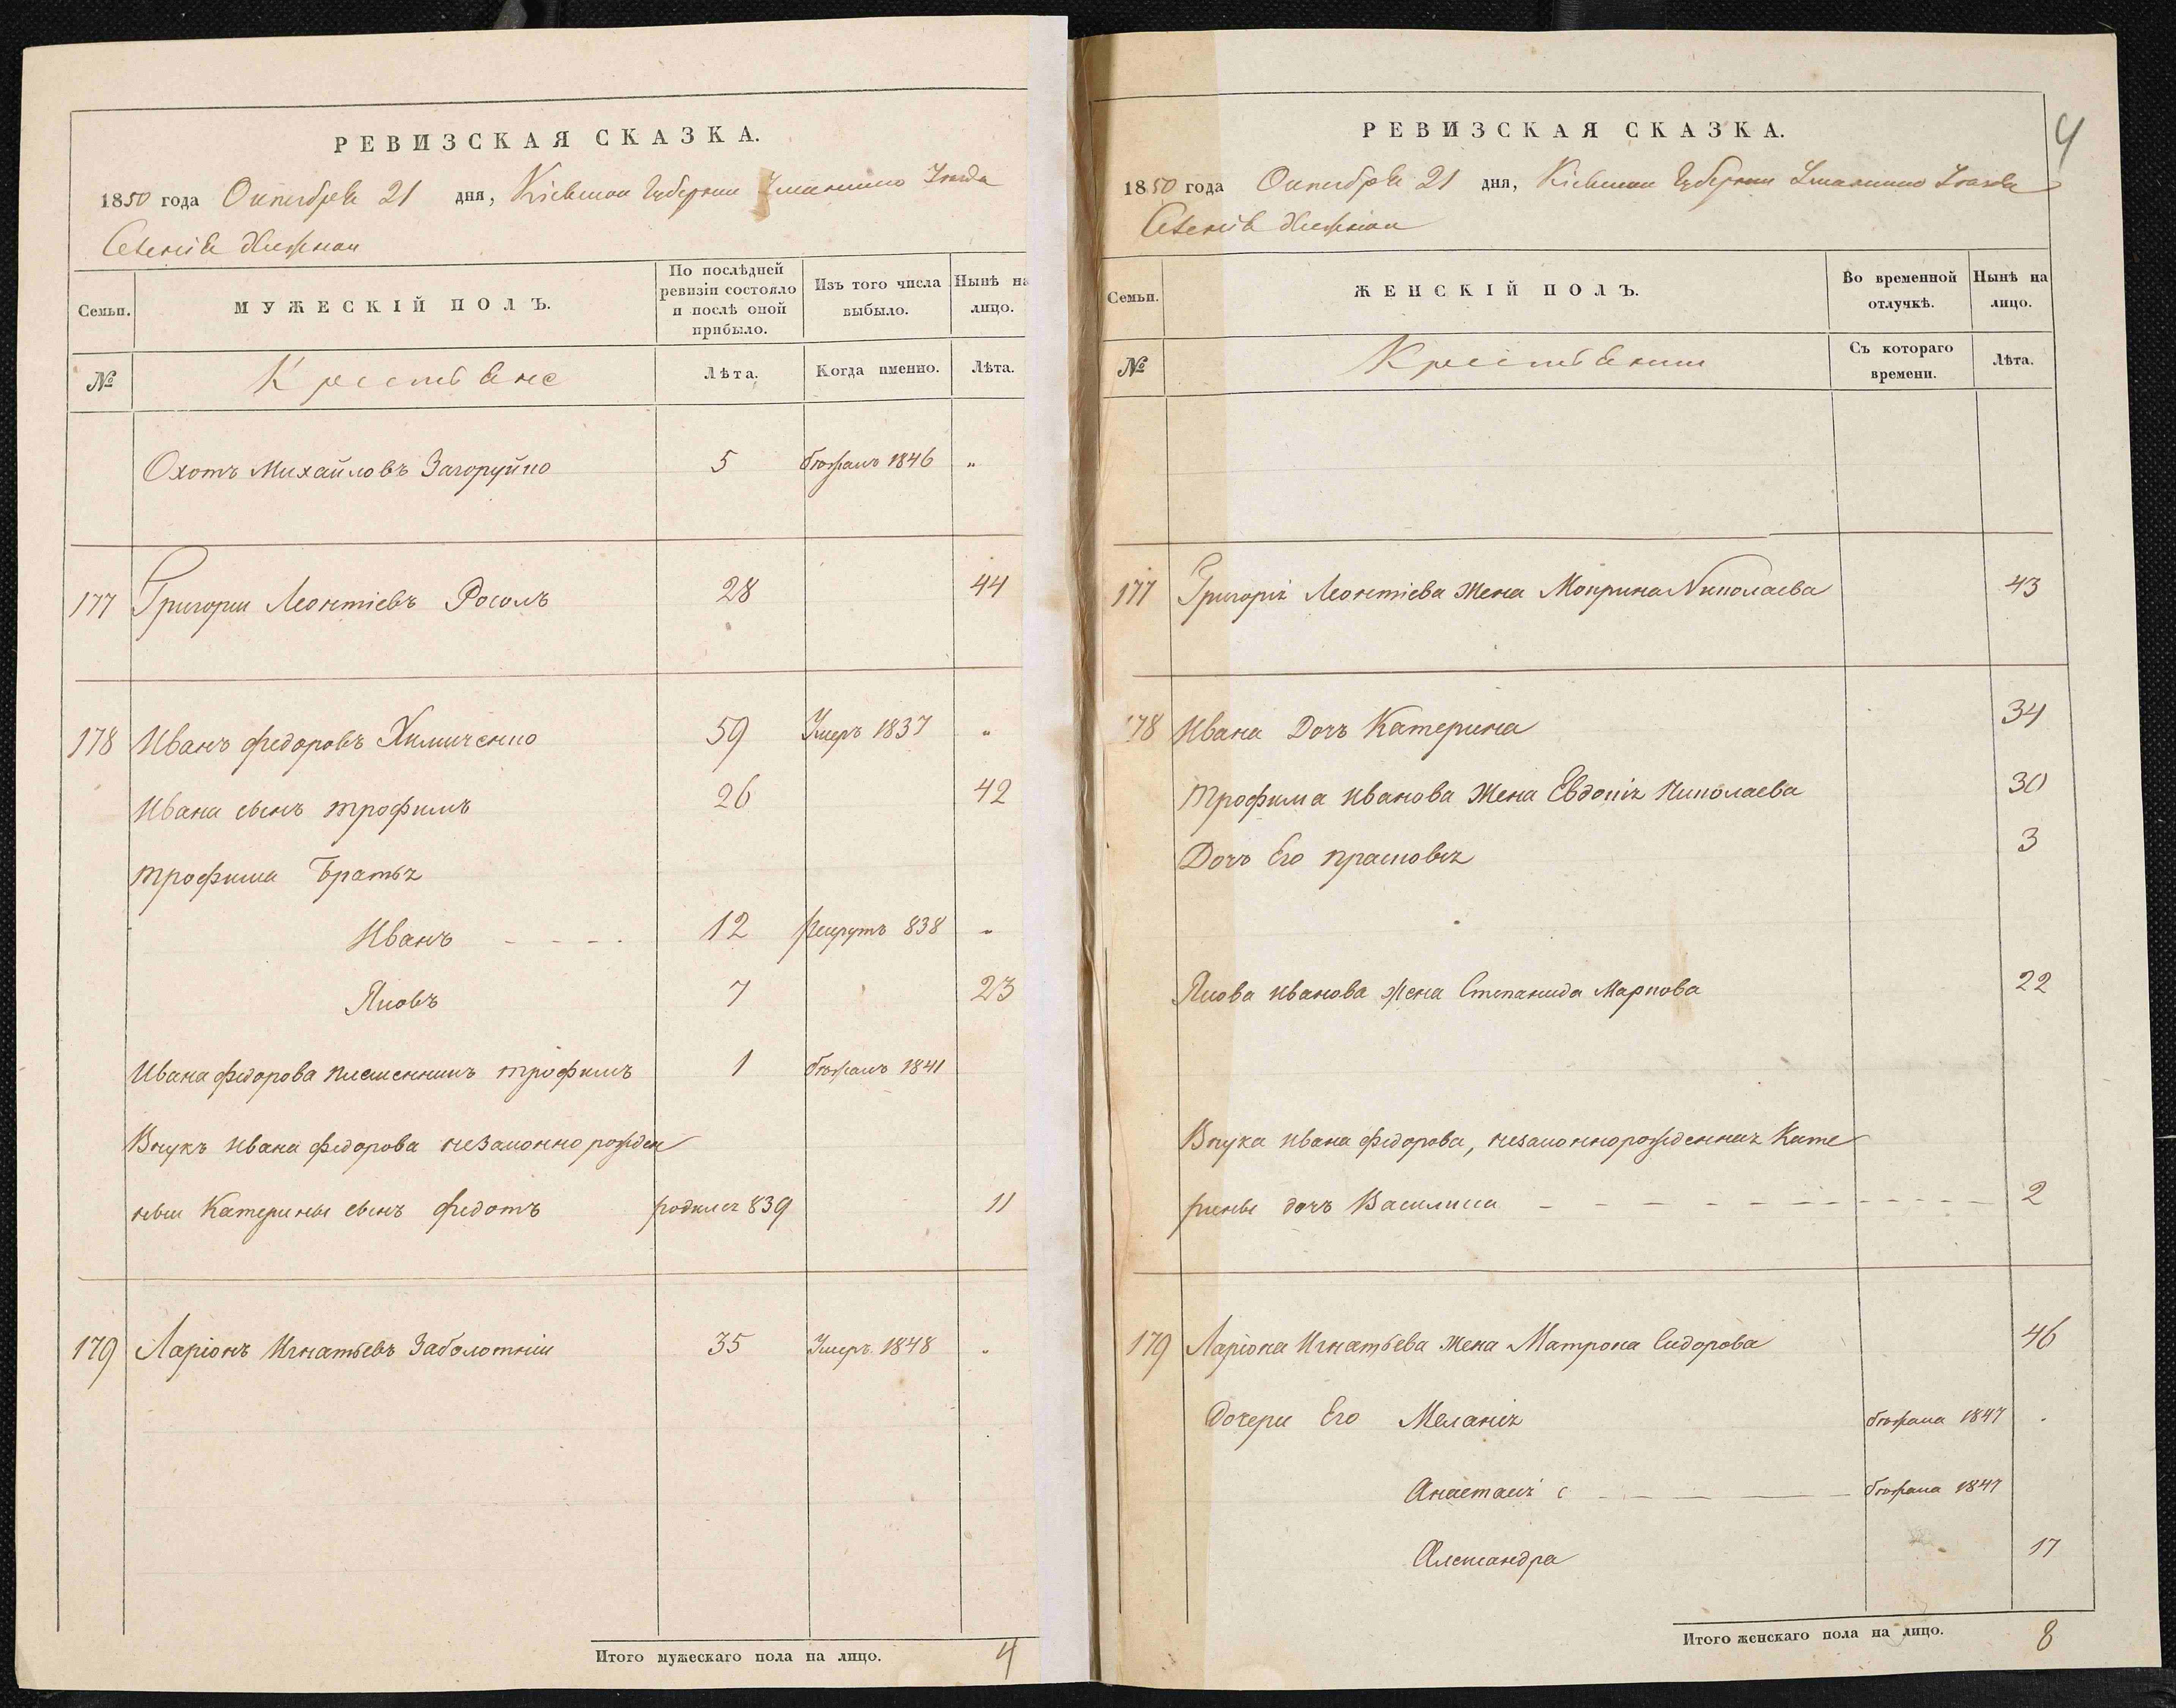 РЕВИЗСКАЯ СКАЗКА.
1850 года Октября 21 дня, Кіевской Губерніи Уманского Уезда
Селенія
Семьи.
МУЖЕСКІЙ ПОЛЪ.
По послѣдней ревизіи состояло и послѣ оной прибыло.
Изъ того числа выбыло.
Нынѣ на лицо.
№
Крестьяне
Лѣта.
Когда именно.
Лѣта.
Охотъ Михайловъ Загоруйко 5 бѣжалъ 1846 "
177 Григорій Леонтіевъ Росолъ 28 44
178 Иванъ Федоровъ Химиченко 59 Умеръ 1837 "
Ивана сынъ Трофимъ 26 42
Трофима Братья
Иванъ 12 рекрутъ 838 "
Яковъ 7 23
Ивана Федорова племенникъ Трофимъ 1 бѣжалъ 1841
Внукъ Ивана Федорова незаконно рожден
ный Катерины сынъ Федотъ родился 839 11
179 Ларіонъ Игнатьевъ Заболотній 35 Умеръ 1848 "
Итого мужескаго пола на лицо. 4
4
РЕВИЗСКАЯ СКАЗКА.
1850 года Октября 21 дня, Кіевской Губерніи Уманского Уезда
Селенія
Семьи.
ЖЕНСКІЙ ПОЛЪ.
Во временной отлучкѣ.
Нынѣ на лицо.
№
Крестьянки
Съ котораго времени.
Лѣта.
177 Григорія Леонтіева жена Мокрина Николаева 43
178 Ивана Дочь Катерина 34
Трофима Иванова Жена Евдокія Николаева 30
Дочь Его Прасковья 3
Якова Иванова жена Степанида Маркова 22
Внука Ивана Федорова, незаконнорожденная Кате
рины дочь Василиса 2
179 Ларіона Игнатьева жена Матрона Сидорова 46
Дочери Его Меланія бѣжала 1847
Анастасія бѣжала 1847
Александра 17
Итого женскаго пола на лицо. 8